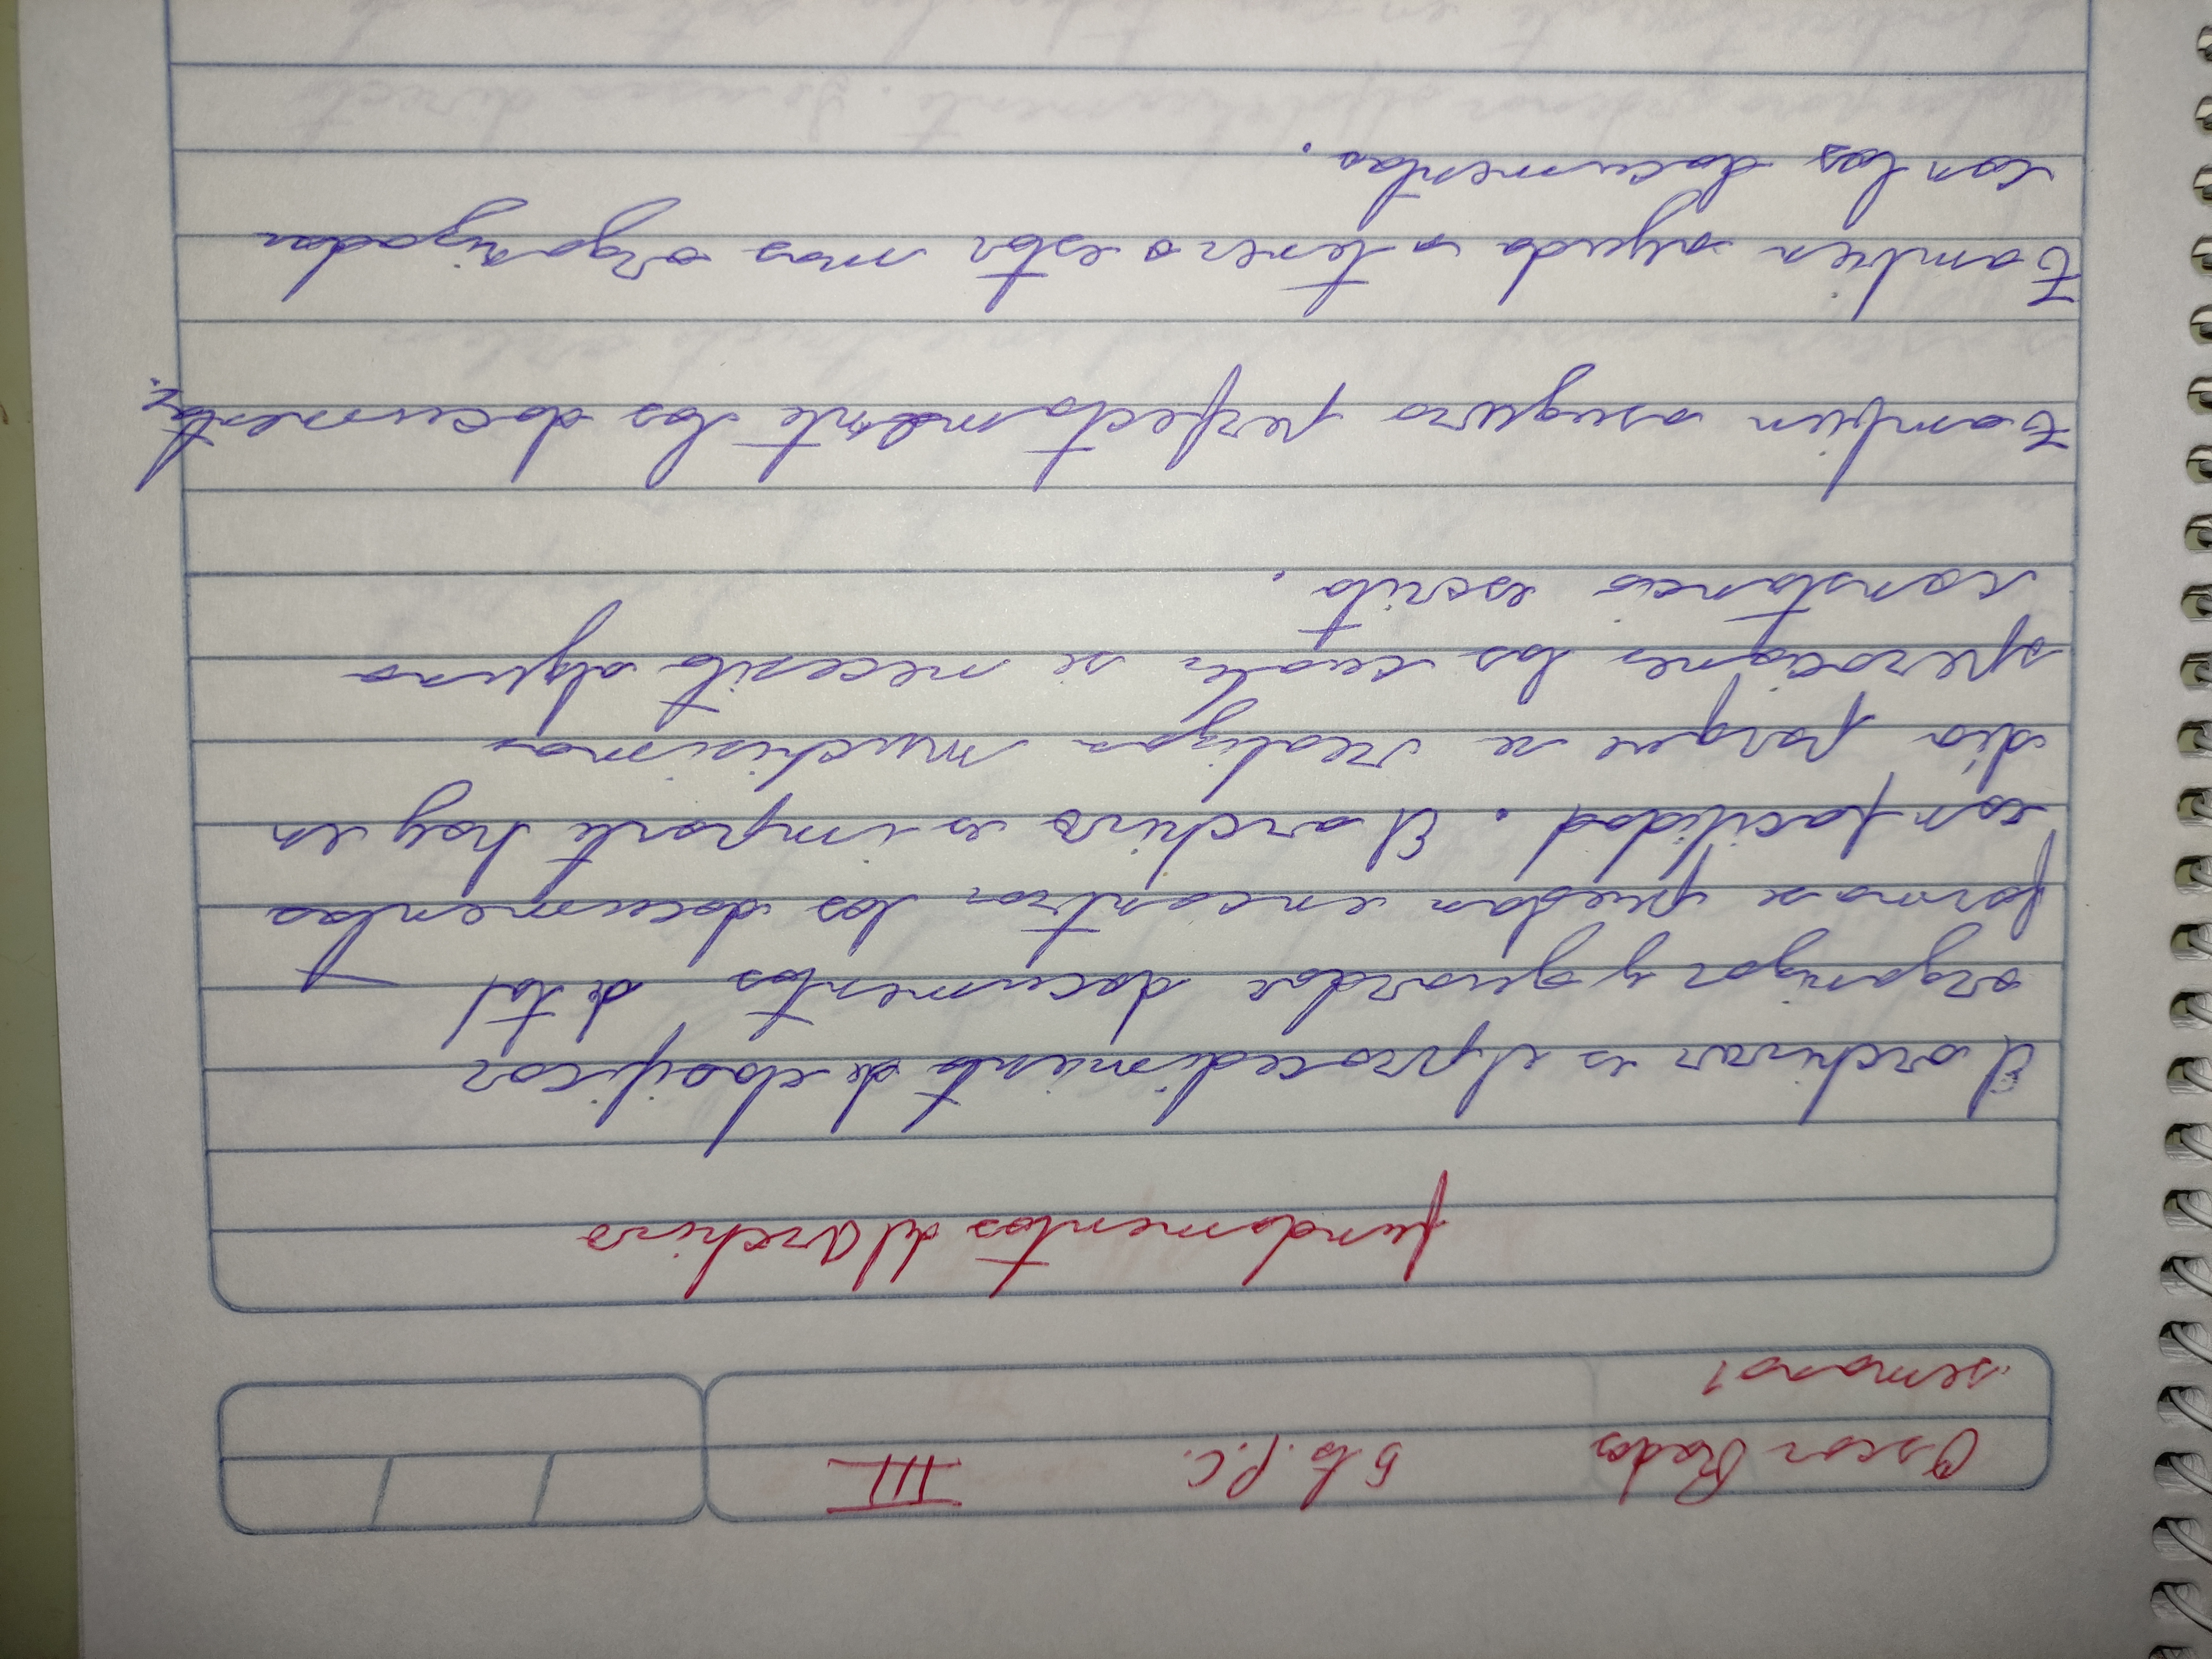 Oscar Rodas 5to. P.C. III
semana 1
fundamentos del Archivo
El archivar es el procedimiento de clasificar
organizar y guardar documentos de tal
forma se puedan encontrar los documentos
con facilidad. El archivo es importe hoy en
día porque se realizan muchisimas
operaciones las cuales se necesita alguna
constancia escrita.
tambien asegura perfectamente los documentos.
tambien ayuda a tener o estar mas organizados
con los documentos.